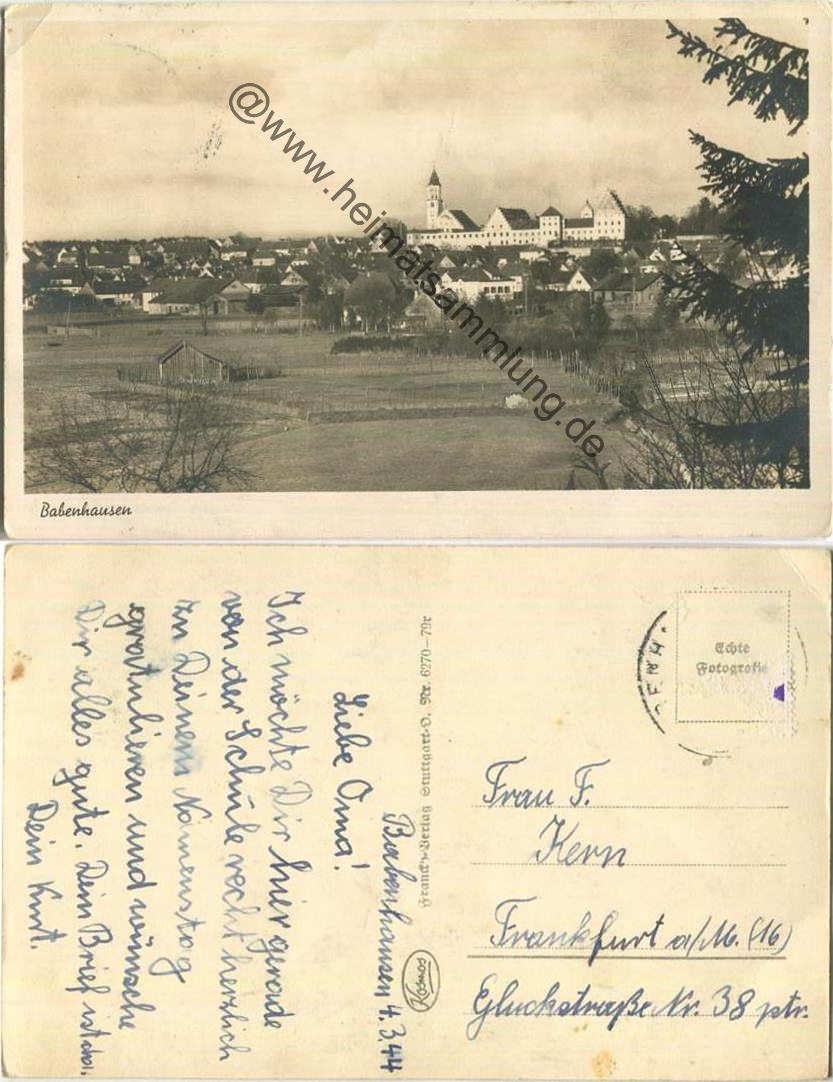 @www.heimatsammlung.de
Babenhausen
Babenhausen 4.3.44
Liebe Oma!
Ich möchte Dir hier gerade
von der Schule recht herzlich
zu Deinem Namenstag
gratulieren und wünsche
Dir alles gute. Dein Brief ist da.
Dein Kurt.
Franckh-Verlag Stuttgart-O. Nr. 6270-79r
Kosmos
Echte
Fotografie
Frau F.
Kern
Frankfurt a/M. (16)
Gluckstraße Nr. 38 ptr.